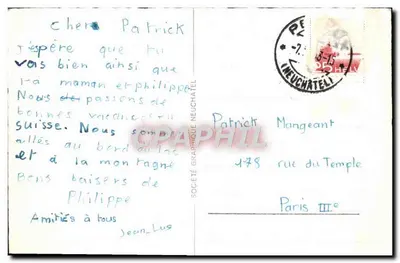 Cher Patrick
J'espère que tu
vas bien ainsi que
ta maman et philippe
Nous passons de
bonnes vacances en
suisse. Nous sommes
allés au bord du lac
et à la montagne
Bons baisers de
Philippe
Amitiés à tous
Jean-Luc
SOCIÉTÉ GRAPHIQUE NEUCHÂTEL
(NEUCHÂTEL)
CPAPHIL
Patrick Mangeant
178 rue du Temple
Paris IIIe